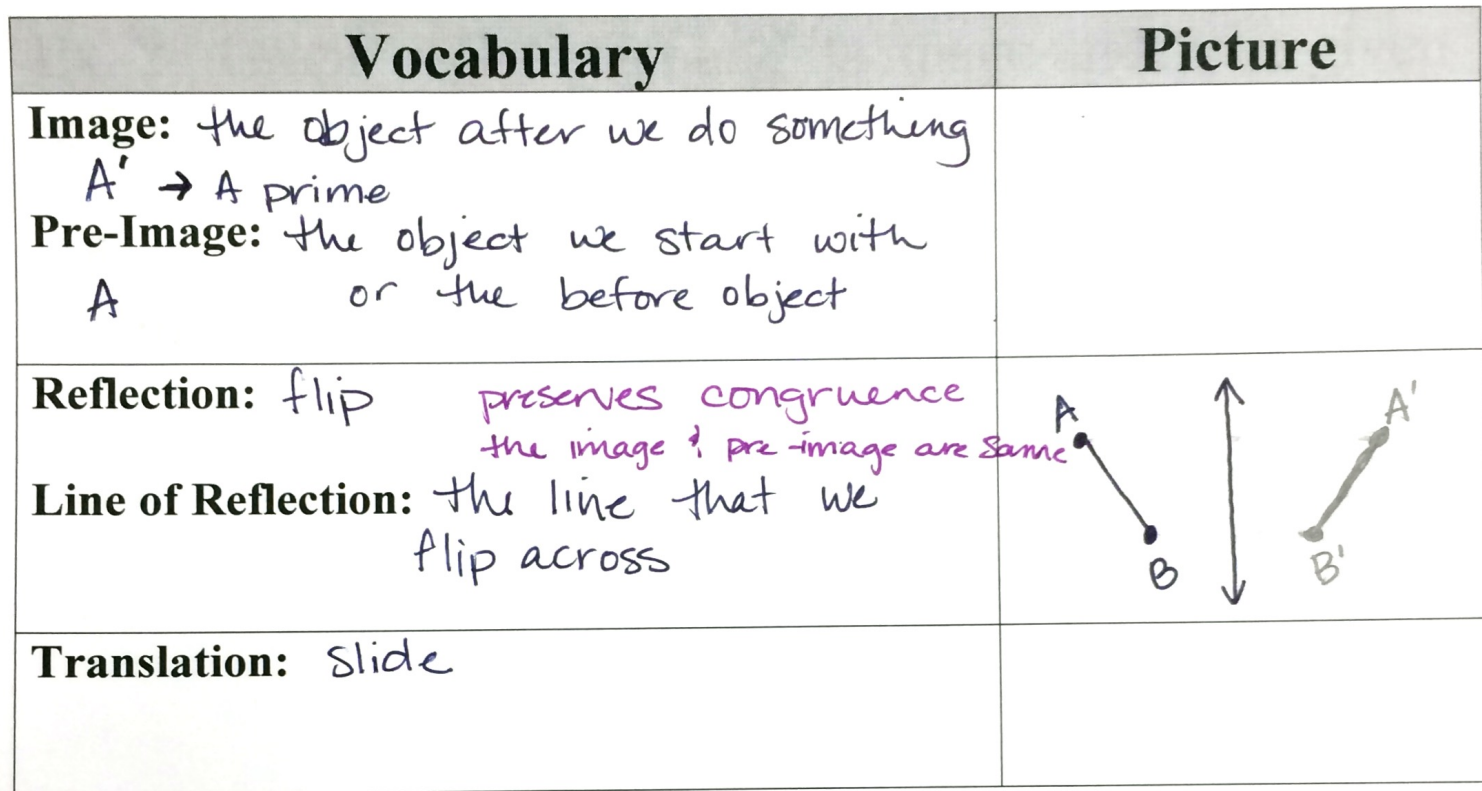 Vocabulary Picture
Image: the object after we do something
A' → A prime
Pre-Image: the object we start with
A or the before object
Reflection: flip preserves congruence
the image & pre-image are same
Line of Reflection: the line that we
flip across
A A'
B B'
Translation: slide